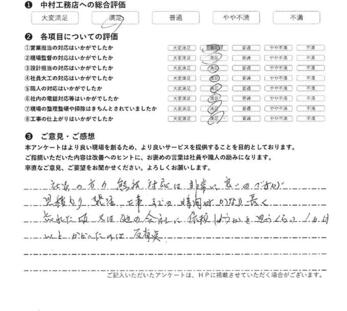 ❶ 中村工務店への総合評価
大変満足 満足 普通 やや不満 不満
❷ 各項目についての評価
①営業担当の対応はいかがでしたか 大変満足 満足 普通 やや不満 不満
②現場監督の対応はいかがでしたか 大変満足 満足 普通 やや不満 不満
③設計担当の対応はいかがでしたか 大変満足 満足 普通 やや不満 不満
④社員大工の対応はいかがでしたか 大変満足 満足 普通 やや不満 不満
⑤職人の対応はいかがでしたか 大変満足 満足 普通 やや不満 不満
⑥社内の電話対応等はいかがでしたか 大変満足 満足 普通 やや不満 不満
⑦現場の整理整頓や掃除はきちんとされていましたか 大変満足 満足 普通 やや不満 不満
⑧工事の仕上がりはいかがでしたか 大変満足 満足 普通 やや不満 不満
❸ ご意見・ご感想
本アンケートはより良い現場を創るため、より良いサービスを提供することを目的としております。
ご指摘いただいた内容は改善へのヒントに、お褒めの言葉は社員や職人の励みになります。
率直なご意見、ご要望をお聞かせください。よろしくお願いします。
社長の方の 対応は非常に良いのですが
見積もり 工事までの時間がかなり長く
忘れた頃 又は他の会社に依頼しようかと思うくらい 1か月
以上かかったのは
ご記入いただきましたアンケートは、HPに掲載させていただく場合がございます。